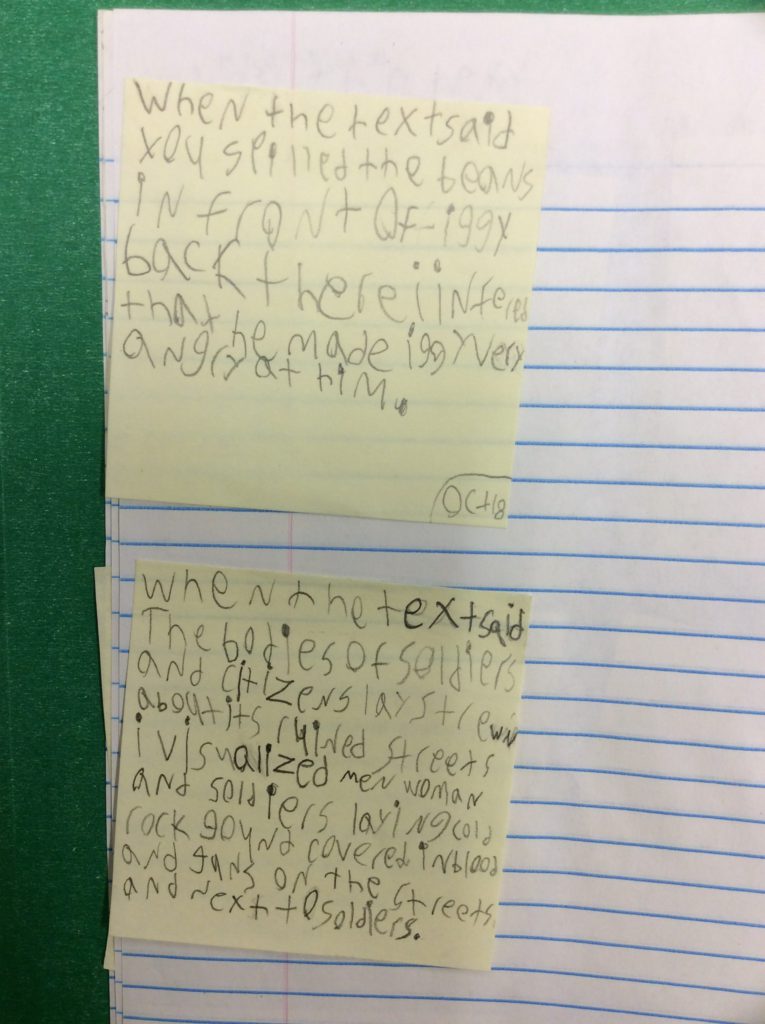 When the text said
you spilled the beans
in front of iggy
back there i infered
that he made iggy very
angry at him.
Oct 18
when the text said
The bodies of soldiers
and citizens lay strewn
about its ruined streets
i visualized men woman
and soldiers laying cold
rock gound covered in blood
and guns on the streets
and next to soldiers.